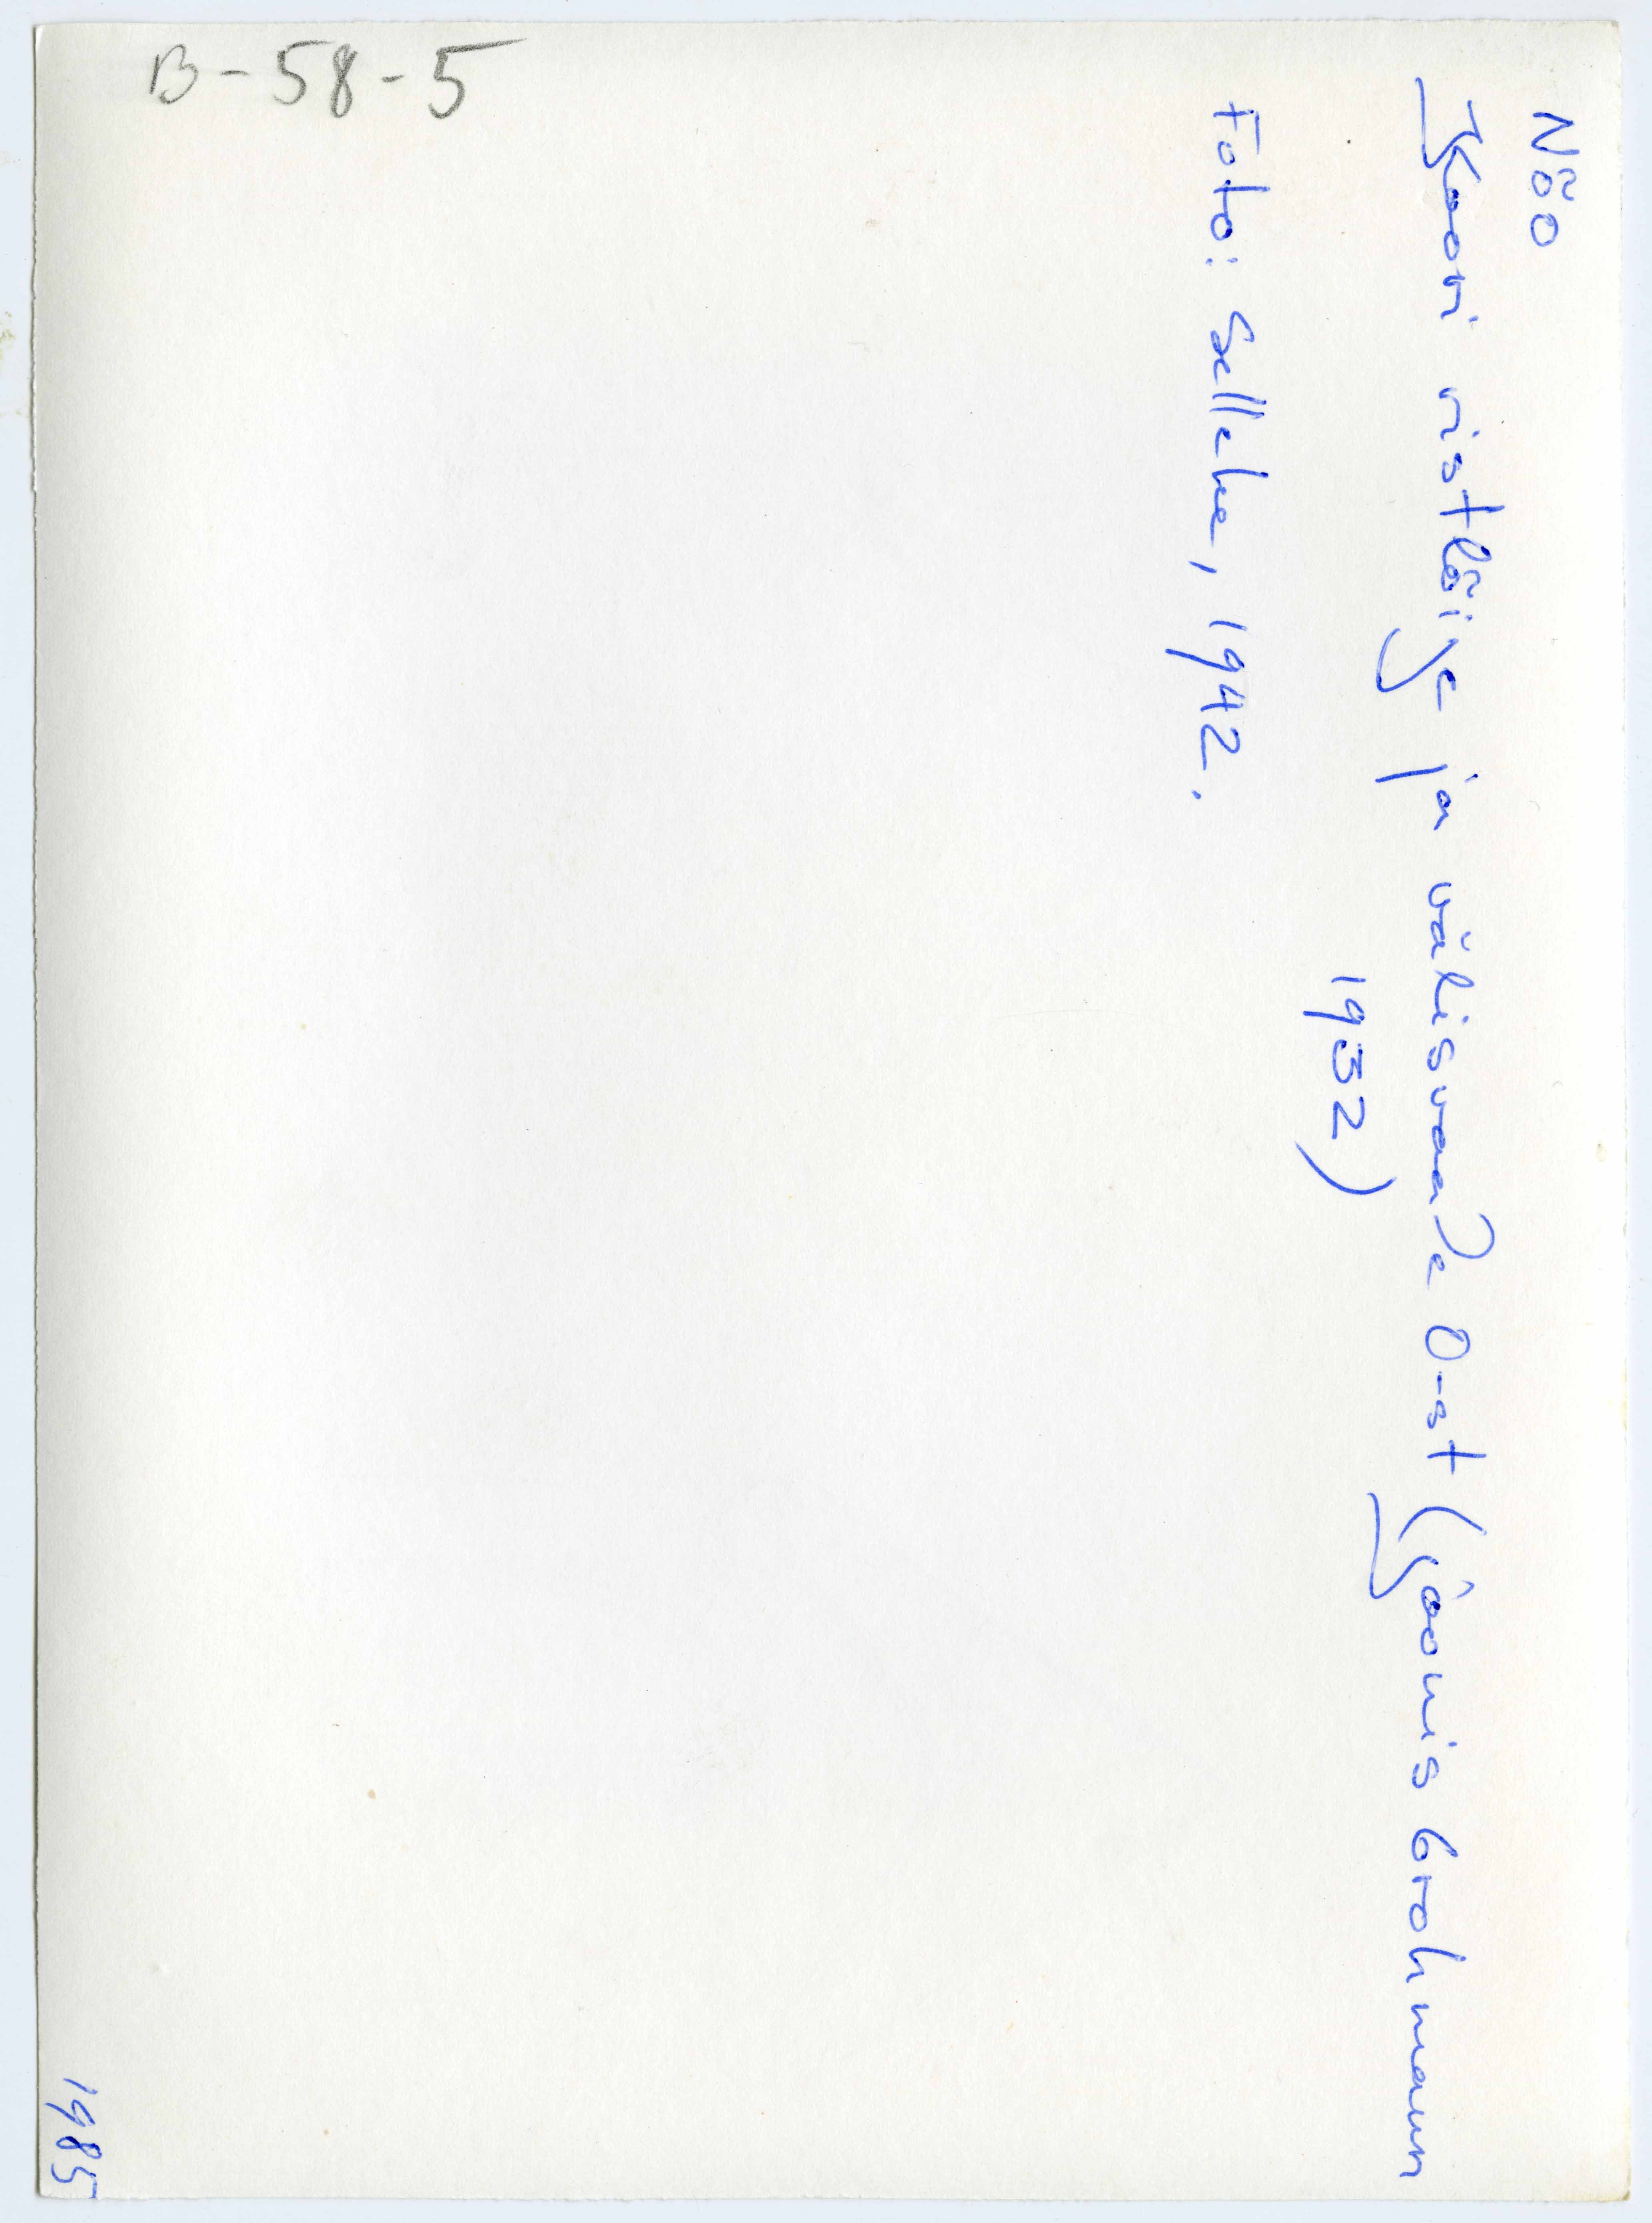 Nõo
Koori ristlõige ja välisvaade O-st (joonis Grohmann
1932)
Foto: Selleke, 1942.
B-58-5
1985